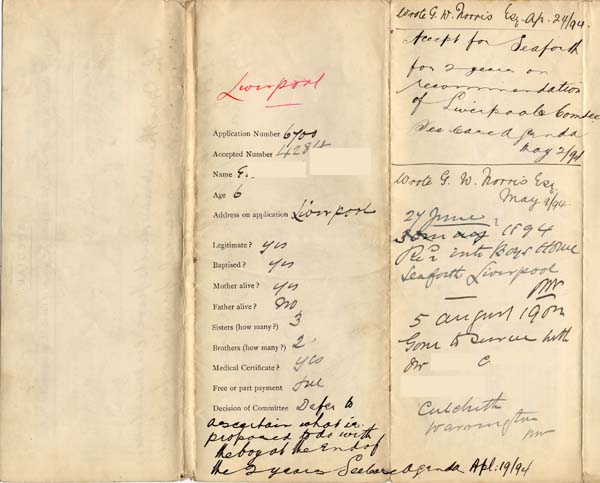 Liverpool
Application Number 6700
Accepted Number 4284
Name E.
Age 6
Address on application Liverpool
Legitimate? yes
Baptised? yes
Mother alive? yes
Father alive? No
Sisters (how many?) 3
Brothers (how many?) 2
Medical Certificate? yes
Free or part payment free
Decision of Committee Defer to
ascertain what is
proposed to do with
the boy at the End of
the 2 years See case agenda Apl. 19/94
Wrote G. W. Norris Esq. Ap. 24/94.
Accept for Seaforth
for 2 years on
recommendation
of Liverpool Comtee
See case Agenda
May 2/94
Wrote G. W. Norris Esq
May 4/94.
27 June
1894
Rec'd into Boys Home
Seaforth Liverpool
5 August 190
Gone to Service with
Mr C.
Culcheth
Warrington